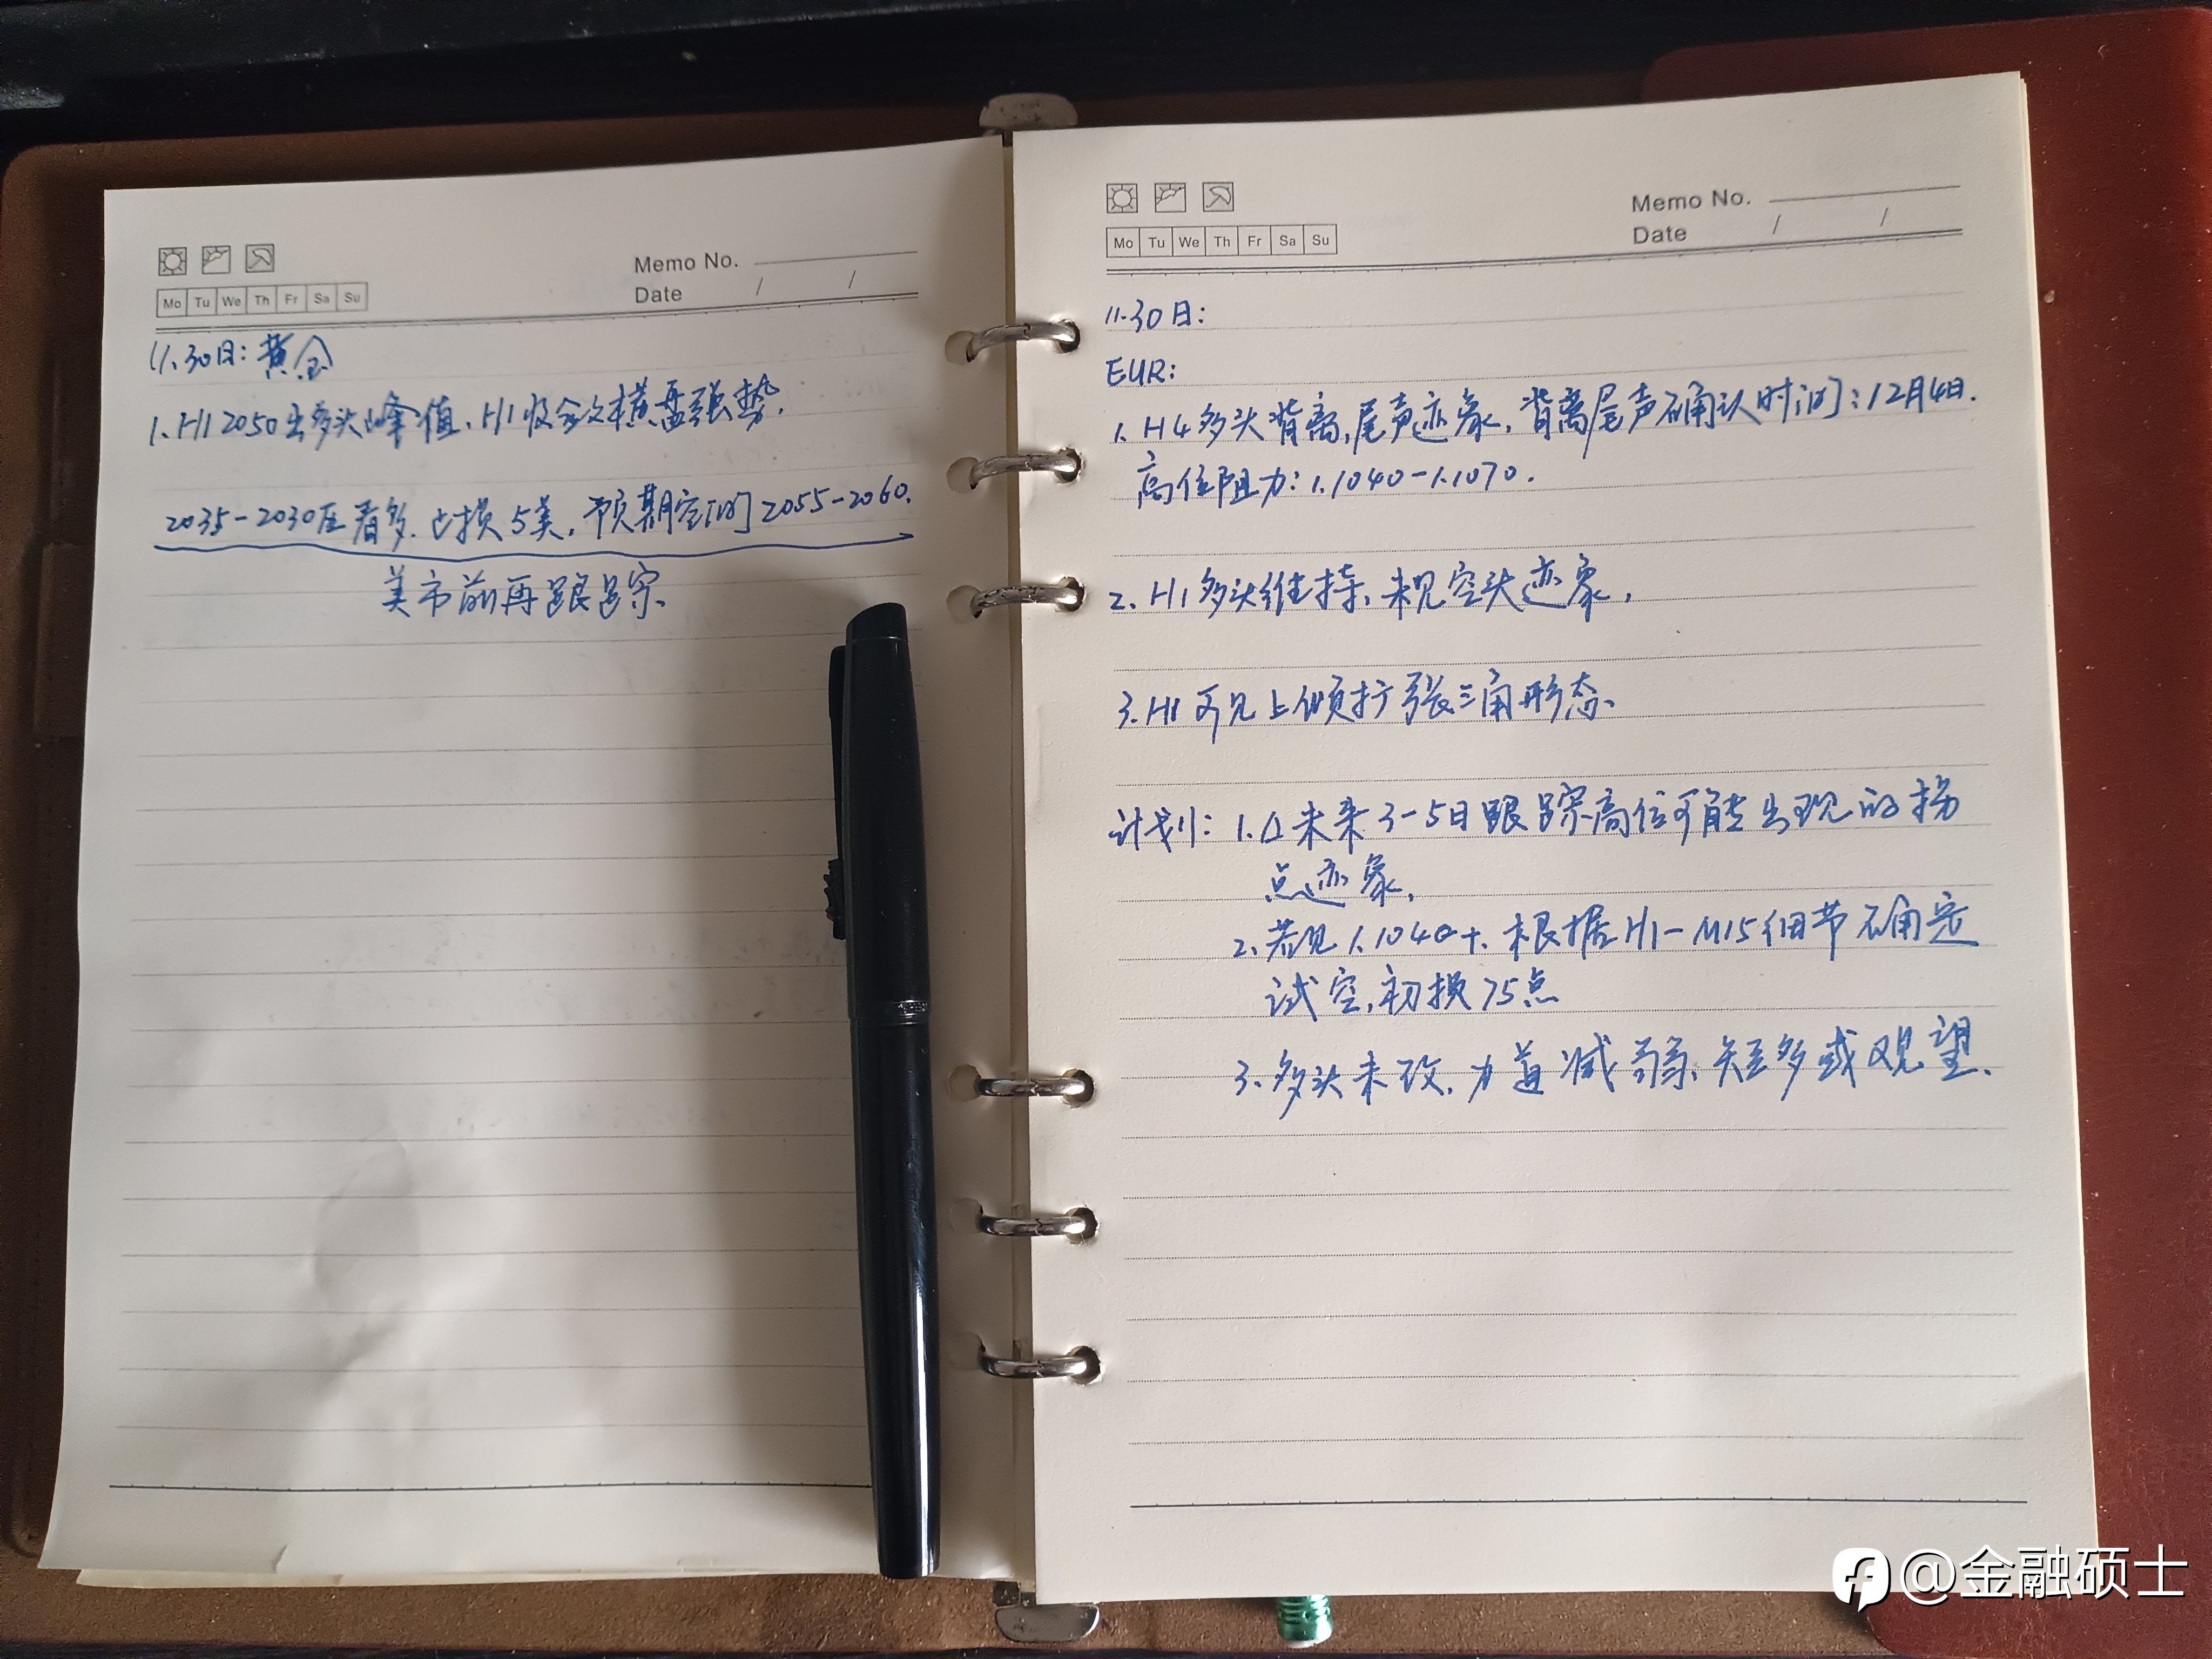 Memo No.
Date / /
Mo Tu We Th Fr Sa Su
11.30日：黄金
1. H1 2050出多头峰值、H1收敛横盘强势.
2035-2030区看多.止损5美，预期空间2055-2060.
美市前再跟踪.
Memo No.
Date / /
Mo Tu We Th Fr Sa Su
11.30日：
EUR：
1. H4多头背离,尾声迹象，背离尾声确认时间：12月4日.
高位阻力：1.1040-1.1070.
2. H1多头维持、未见空头迹象.
3. H1可见上倾扩张三角形态.
计划：1.△未来3-5日跟踪高位可能出现的拐
点迹象.
2.若见1.1040+.根据H1-M15细节确定
试空,初损75点
3.多头未改.力道减弱、短多或观望.
@金融硕士